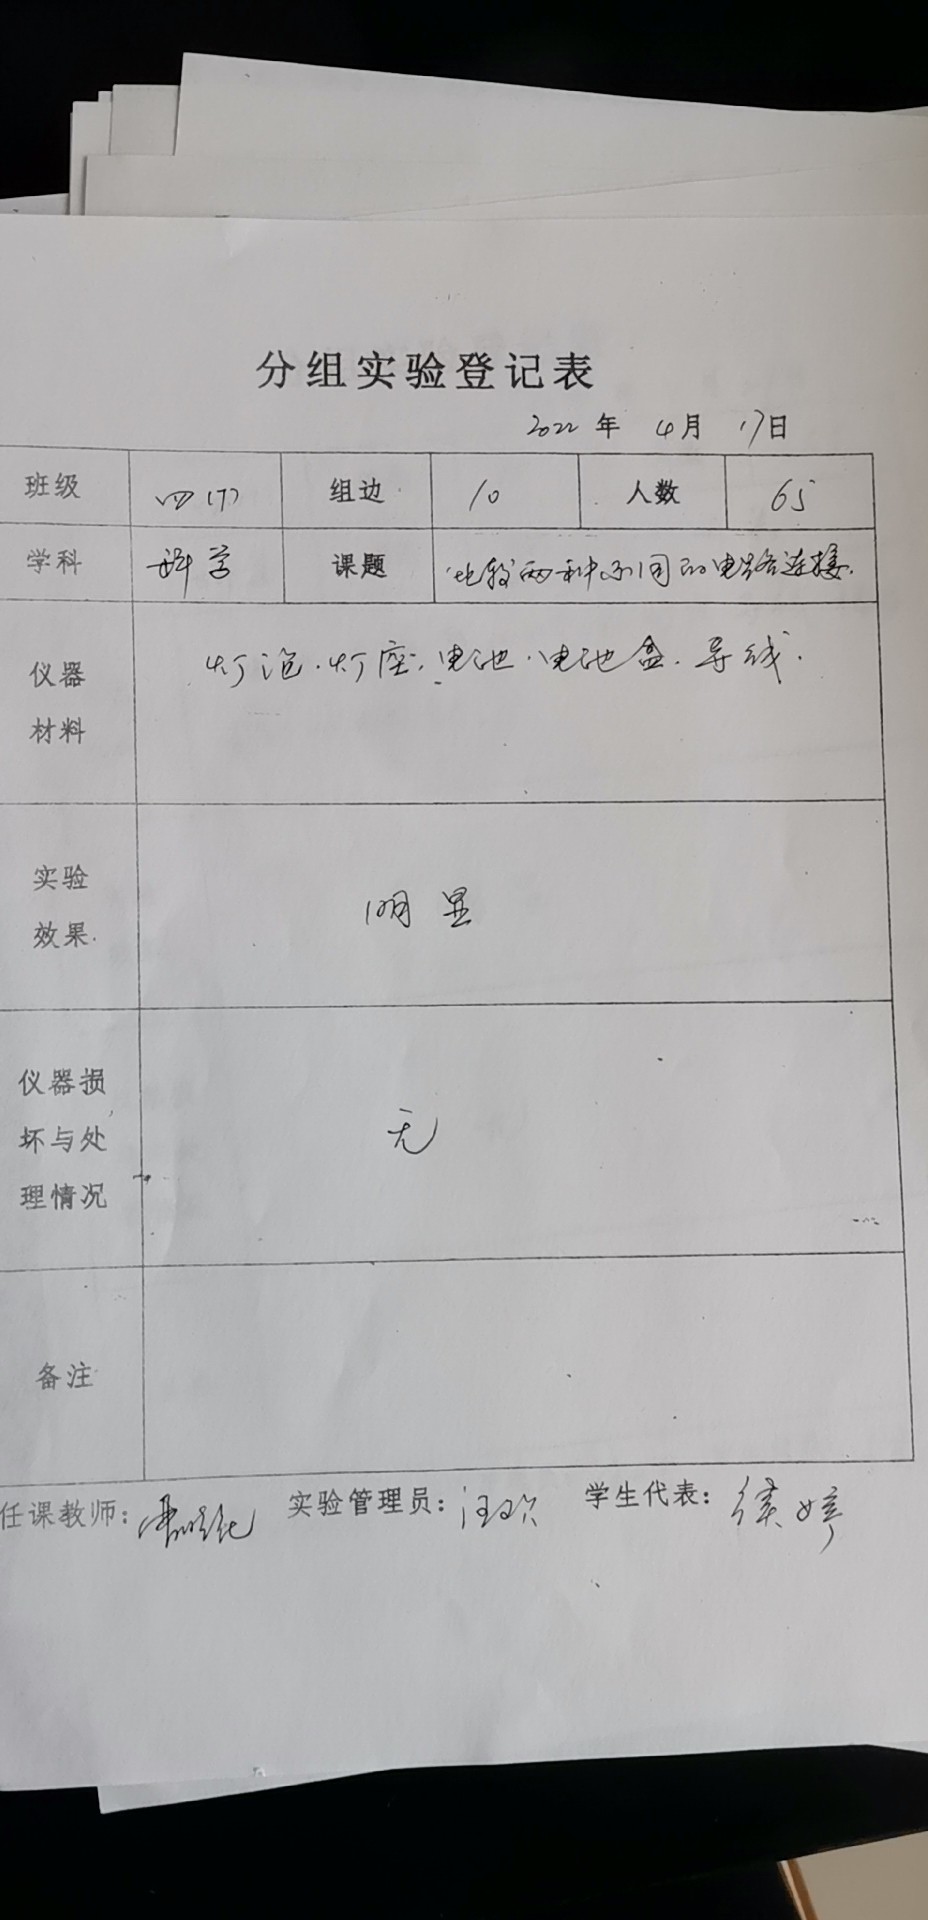 分组实验登记表
2022 年 4月 17日
班级 四(7) 组边 10 人数 65
学科 科学 课题 比较两种不同的电路连接.
仪器 灯泡.灯座.电池.电池盒.导线.
材料
实验
效果. 明显
仪器损
坏与处 无
理情况
备注
任课教师: 实验管理员:汪欢 学生代表: 婷